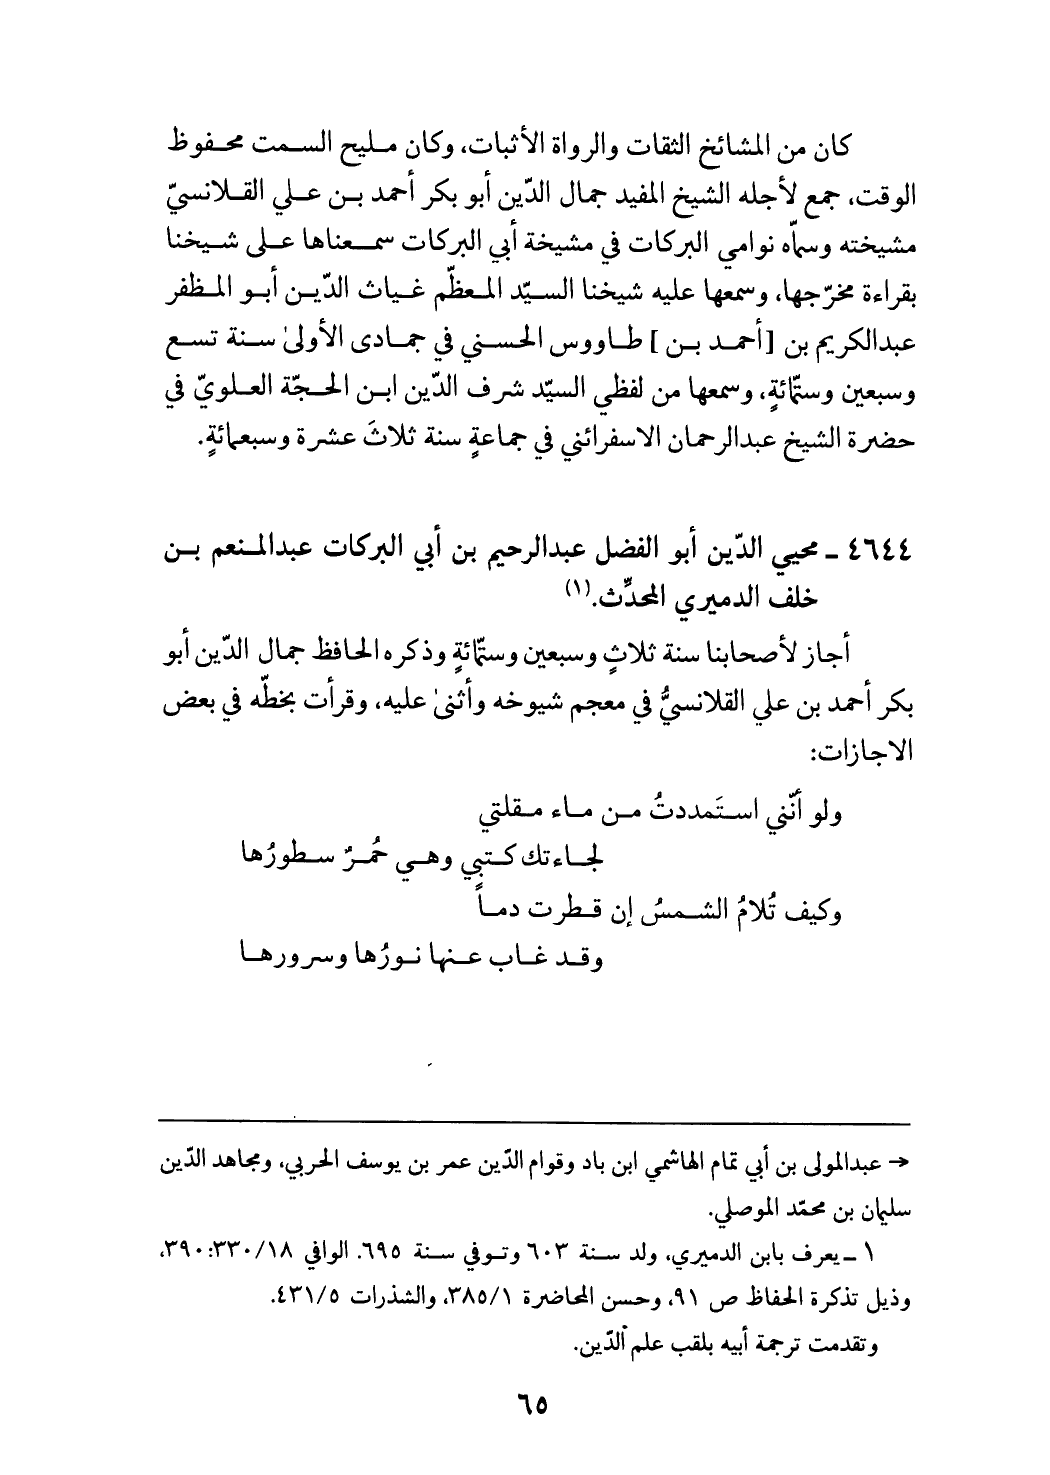 كان من المشائخ الثقات والرواة الأثبات، وكان مليح السمت محفوظ
الوقت، جمع لأجله الشيخ المفيد جمال الدّين أبو بكر أحمد بن علي القلانسيّ
مشيخته وسماّه نوامي البركات في مشيخة أبي البركات سمعناها على شيخنا
بقراءة مخرّجها، وسمعها عليه شيخنا السيّد المعظّم غياث الدّين أبو المظفر
عبدالكريم بن [أحمد بن] طاووس الحسني في جمادى الأولىٰ سنة تسع
وسبعين وستّمائةٍ، وسمعها من لفظي السيّد شرف الدّين ابن الحجّة العلويّ في
حضرة الشيخ عبدالرحمان الاسفرائني في جماعةٍ سنة ثلاثَ عشرة وسبعمائةٍ.
٤٦٤٤ ـ محيي الدّين أبو الفضل عبدالرحيم بن أبي البركات عبدالمنعم بن
خلف الدميري المحدِّث.(١)
أجاز لأصحابنا سنة ثلاثٍ وسبعين وستّمائةٍ وذكره الحافظ جمال الدّين أبو
بكر أحمد بن علي القلانسيُّ في معجم شيوخه وأثنىٰ عليه، وقرأت بخطّه في بعض
الاجازات:
ولو أنّني استَمددتُ من ماء مقلتي
لجاءتك كتبي وهي حُمرٌ سطورُها
وكيف تُلامُ الشمسُ إن قطرت دماً
وقد غاب عنها نورُها وسرورها
→ عبدالمولى بن أبي تمام الهاشمي ابن باد وقوام الدّين عمر بن يوسف الحربي، ومجاهد الدّين
سليمان بن محمّد الموصلي.
١ ـ يعرف بابن الدميري، ولد سنة ٦٠٣ وتوفي سنة ٦٩٥. الوافي ١٨/٣٣٠:٣٩٠،
وذيل تذكرة الحفاظ ص ٩١، وحسن المحاضرة ١/٣٨٥، والشذرات ٥/٤٣١.
وتقدمت ترجمة أبيه بلقب علم الدّين.
٦٥